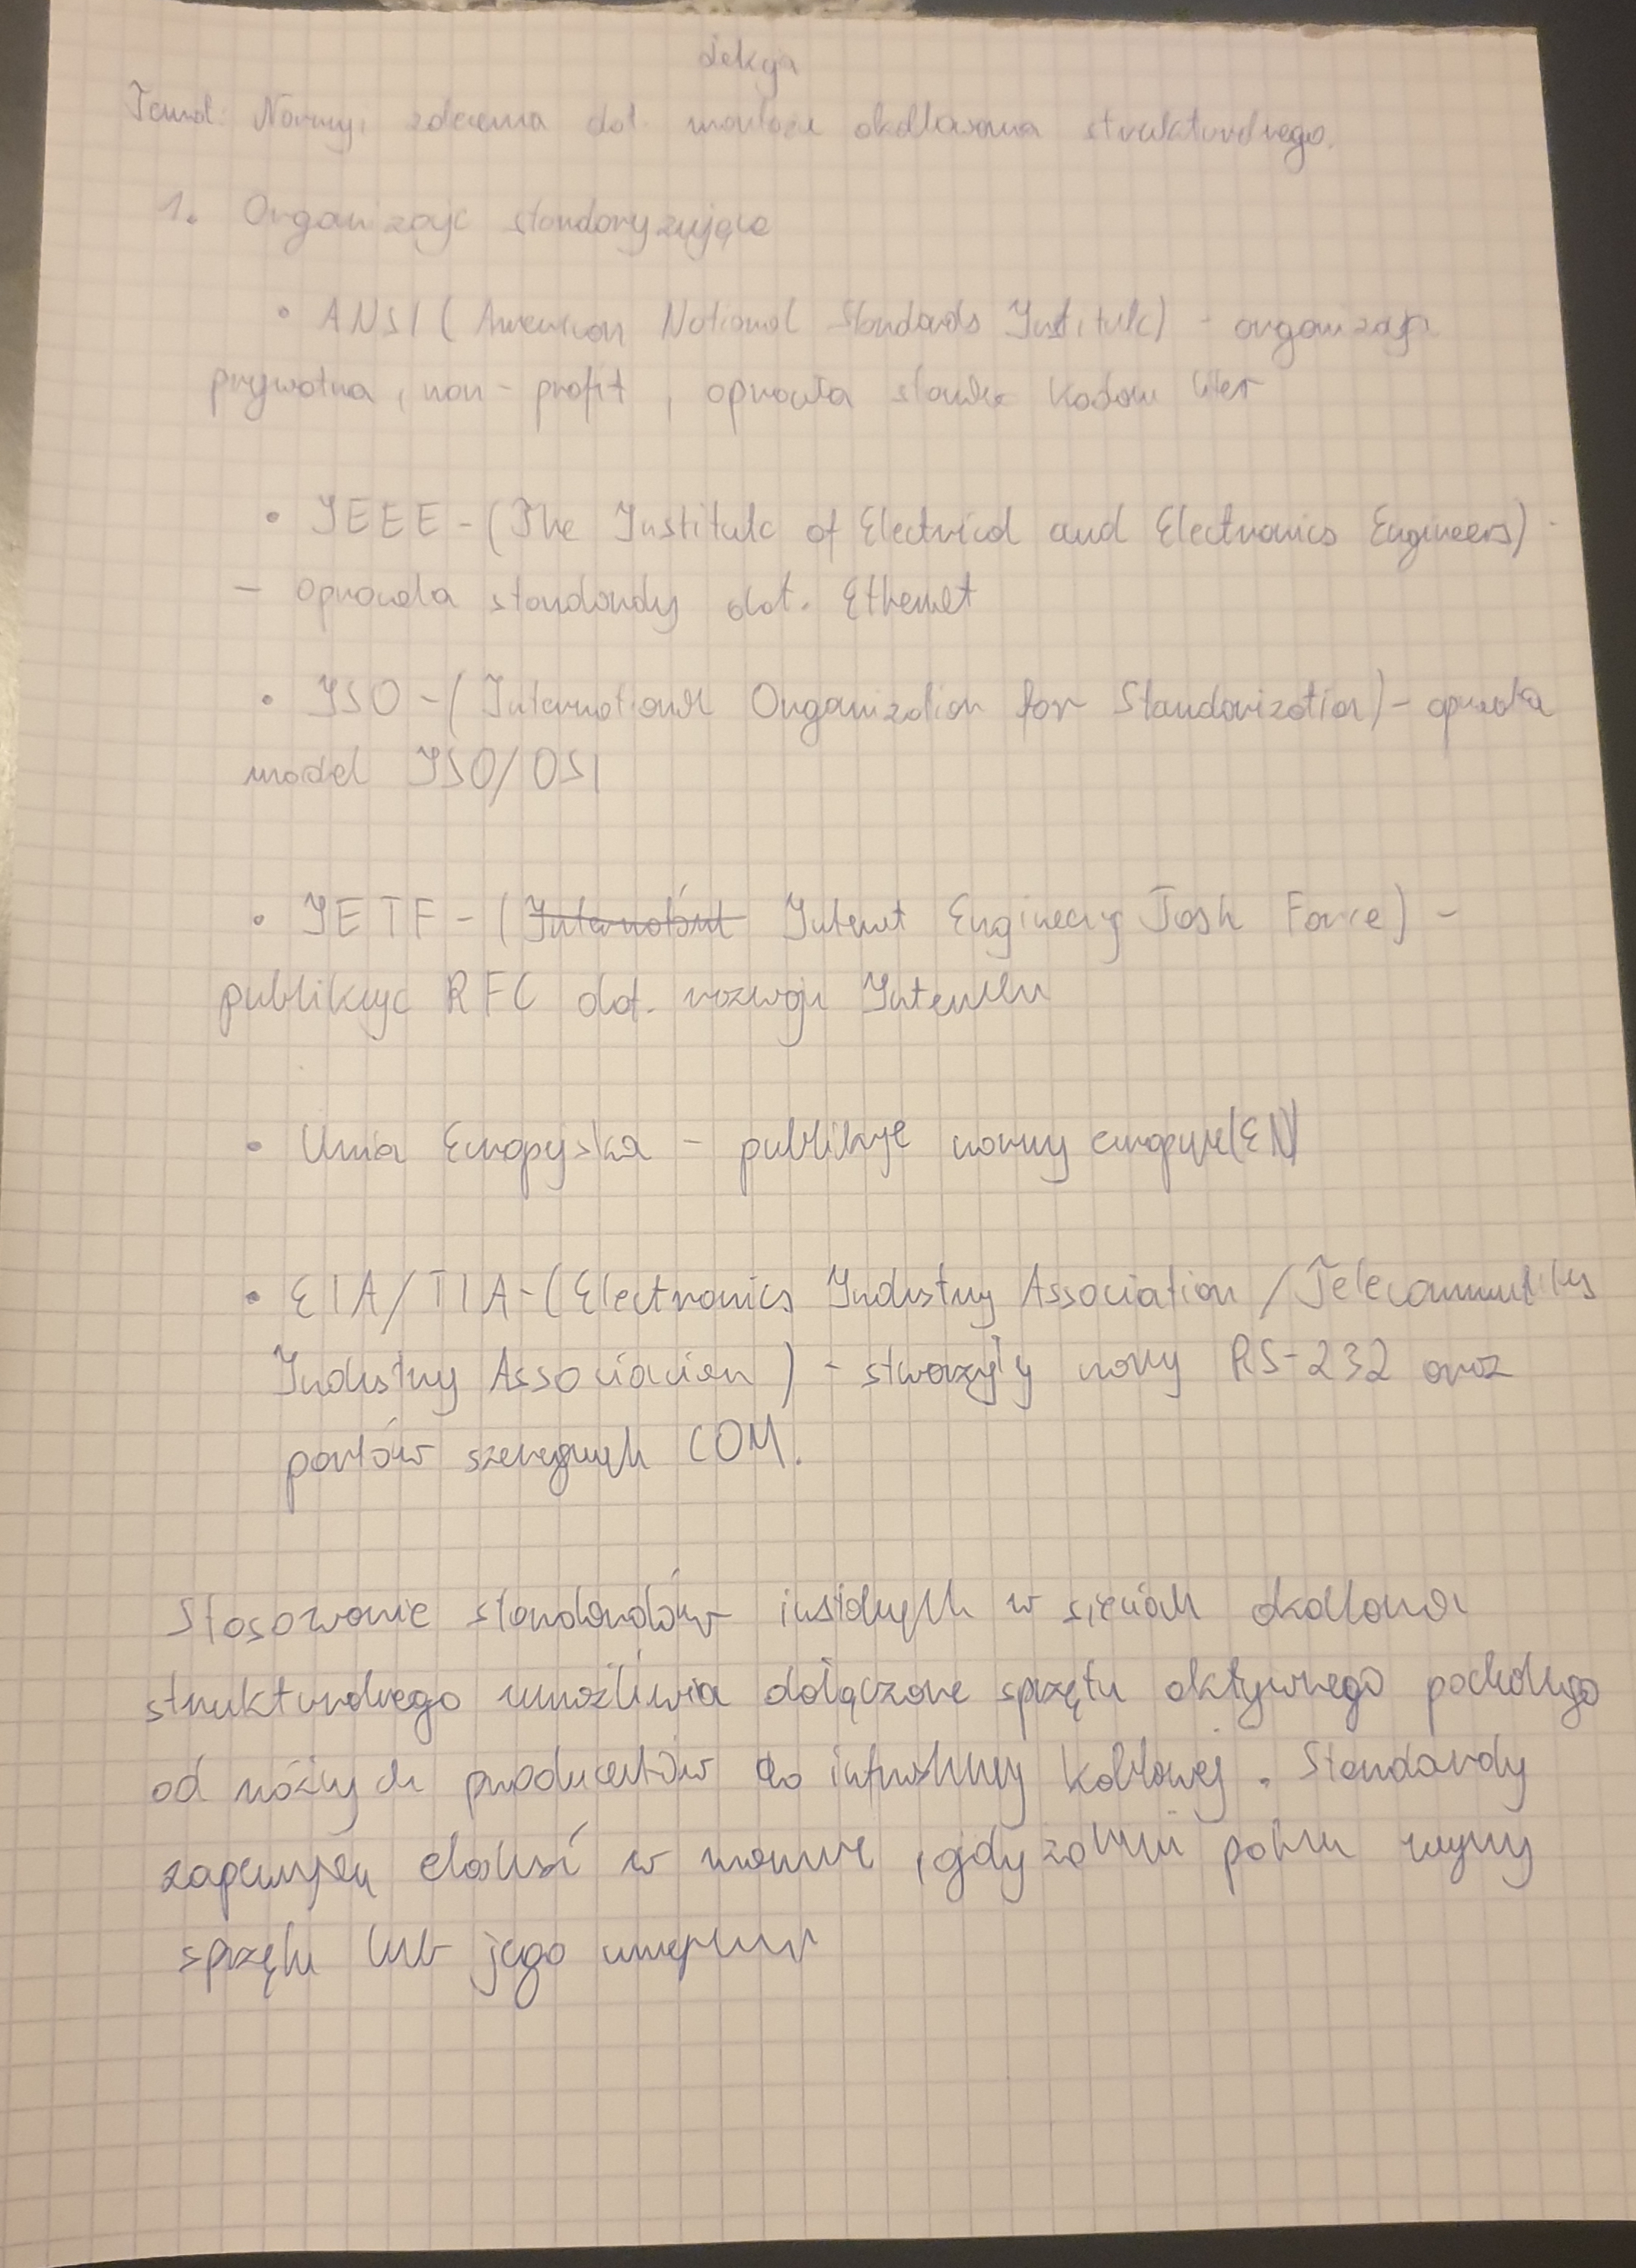 Lekcja
Temat: Normy i zalecenia dot. montażu okablowania strukturalnego.
1. Organizacje standaryzujące
• ANSI (American National Standards Institute) - organizacja
prywatna, non-profit, opracowała kodów liter
• IEEE - (The Institute of Electrical and Electronics Engineers)
- opracowała standardy dot. Ethernet
• ISO - (International Organization for Standarization) - opracowała
model ISO/OSI
• IETF - (Internet Engineering Task Force) -
publikacje RFC dot. rozwoju Internetu
• Unia Europejska - publikuje normy europejskie (EN)
• EIA/TIA - (Electronics Industry Association / Telecommunications
Industry Associacion) - stworzyły normy RS-232 oraz
portów szeregowych COM.
Stosowanie standardów w sieciach okablowania
strukturalnego umożliwia dołączenie sprzętu aktywnego pochodzącego
od różnych producentów do infrastruktury kablowej. Standardy
zapewniają elastyczność w momencie, gdy zaistnieje potrzeba wymiany
sprzętu lub jego